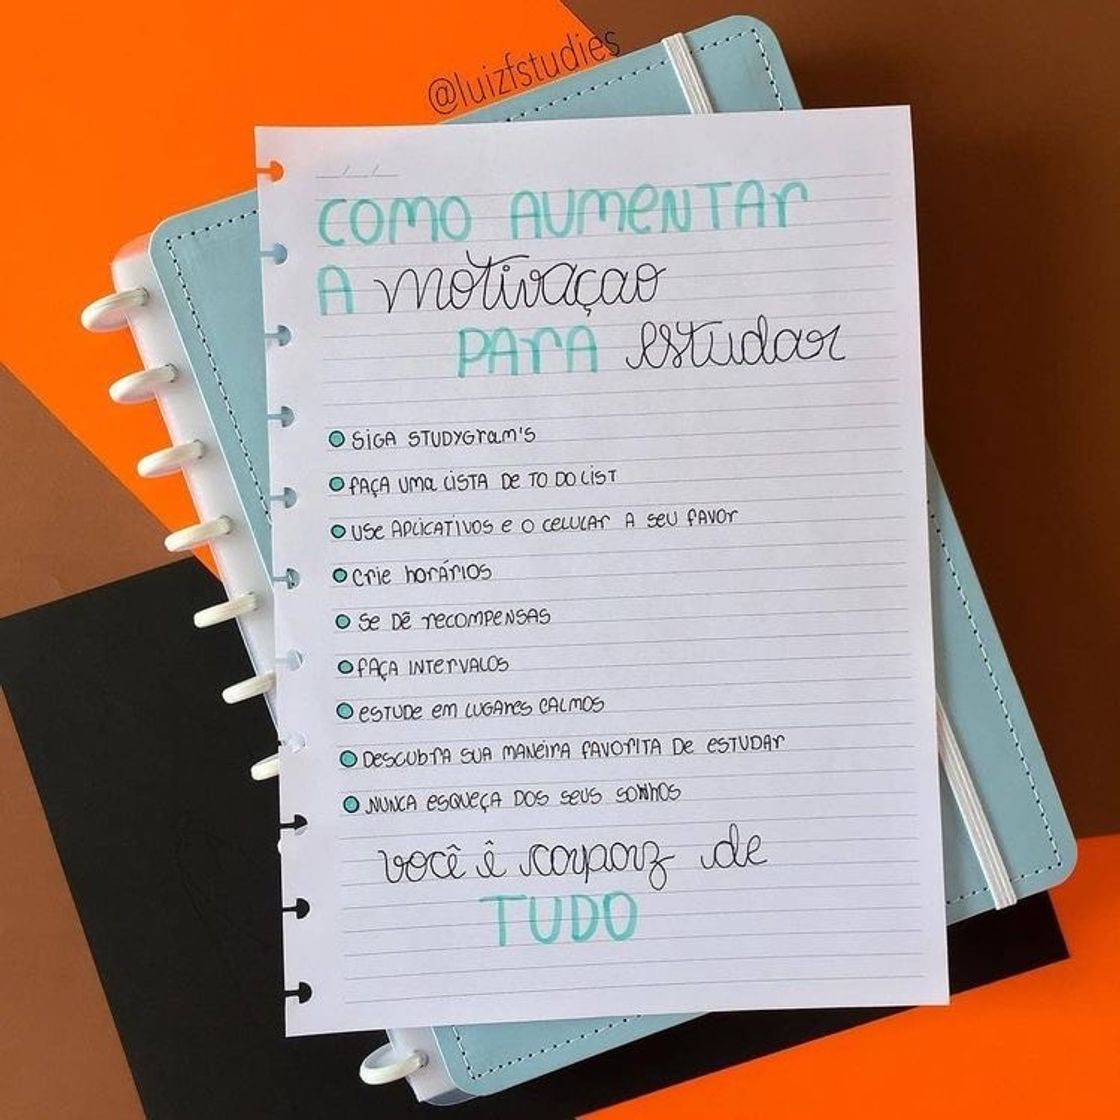 @luizfstudies
COMO AUMENTAR
A motivaçao
PARA estudar
SIGA STUDYGRAM'S
FAÇA UMA LISTA DE TO DO LIST
USE APLICATIVOS E O CELULAR A SEU FAVOR
CRIE HORÁRIOS
SE DÊ RECOMPENSAS
FAÇA INTERVALOS
ESTUDE EM LUGARES CALMOS
DESCUBRA SUA MANEIRA FAVORITA DE ESTUDAR
NUNCA ESQUEÇA DOS SEUS SONHOS
você ê capaz de
TUDO